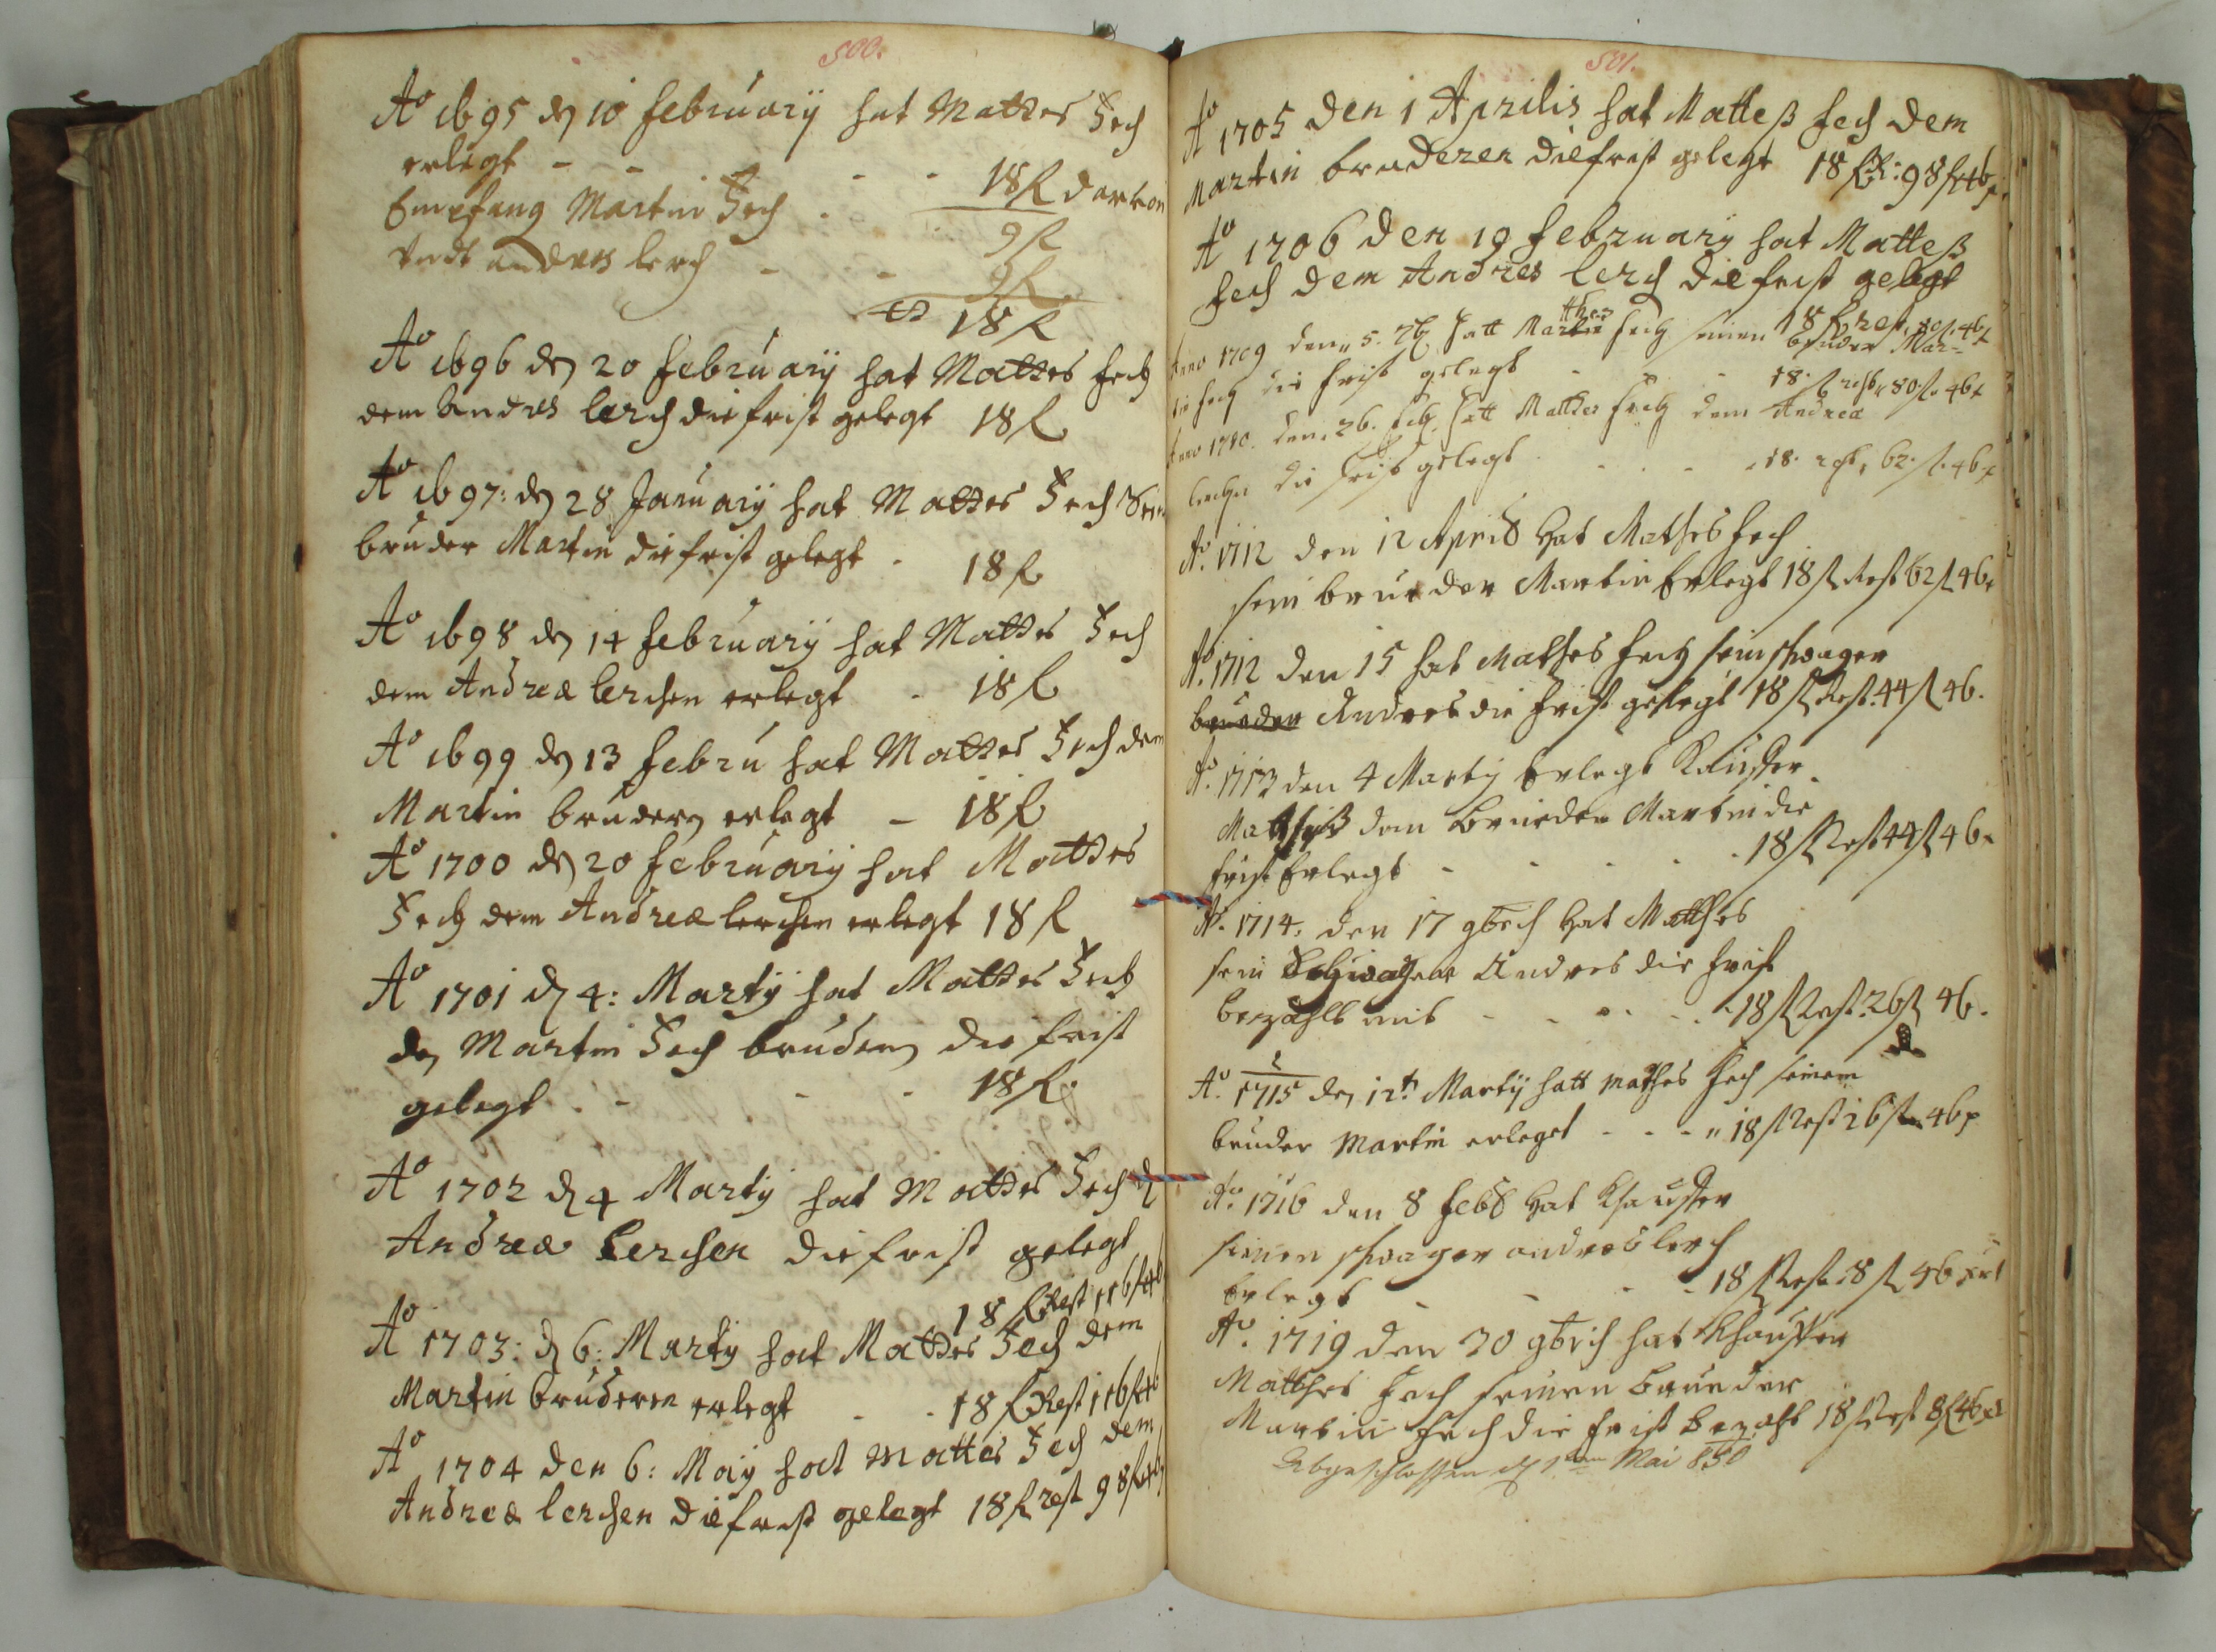 500.
Aō 1695 dē 10 February hat Mattes Fech
erlegt - - - - 18 f darvon
Empfang Martin Fech - 9 f
Vndt andres lerch - - 9 f
18 f
Aō 1696 dē 20 February hat Mattes Fech
dem Andres lerch die frist gelegt 18 f
Aō 1697: dē 28 January hat Mattes Fech
bruder Martin die frist gelegt - 18 f
Aō 1698 dē 14 February hat Mattes Fech
dem Andreæ lerchen erlegt - 18 f
Aō 1699 dē 13 Febru hat Mattes Fech dem
Martin brudern erlegt - 18 f
Aō 1700 dē 20 February hat Mattes
Fech dem Andreæ lerchen erlegt 18 f
Aō 1701 dē 4: Marty hat Mattes Fech
dē Martin Fech brudern die frist
gelegt - - - - 18 f
Aō 1702 dē 4 Marty hat Mattes Fech dē
Andreæ Lerchen die frist gelegt
18 f Rest 116 f 46
Aō 1703: dē 6: Marty hat Mattes Fech dem
Martin bruderen erlegt - - 18 f Rest 116 f 46
Aō 1704 den 6: May hat Mattes Fech dem
Andreæ lerchen die frist gelegt 18 f rest 98 f 46
501.
Aō 1705 den 1 Aprilis hat Matteß Fech dem
Martin bruderen die frist gelegt 18 f R: 98 f 46 x.
Aō 1706 den 19 February hat Matteß
Fech dem Andres lerch die frist gelegt
18 f rest 80 f 46 x
Anno 1709 den 5. hatt Matthes Fech seinen bruder Mar-
tin Fech die frist gelegt - - - 18. f rest 80 f. 46 x
Anno 1710. den 26. feb. hatt Matthes Fech dem Andrea
lerchen die frist gelegt - - - 18. rest, 62. f. 46 x
Aō 1712 den 12 April Hat Mathes Fech
sein bruder Martin Erlegt 18 f Rest 62 f 46 x
Aō. 1712 den 15 hat Mathes Fech sein schwager
bruder Andres die frist gelegt 18 f Rest. 44 f 46.
Aō. 1713 den 4 Marty Erlegt Kauffer
Matheß dem Brueder Martin die
frist Erlegt - - - - 18 f Rest 44 f 46 x
Aō. 1714. den 17 9brich Hat Matthes
sein Schwager Andres die frist
bezahlt mit - - - - 18 f Rest 26 f 46.
Aō. 1715 dē 12 t. Martij hatt Mathes Fech seinem
bruder Martin erleget - - - 18 f Rest 26 f 46 x
Aō. 1716 den 8 feb Hat Khauffer
seinen schwager andres lerch
Erlegt - - - 18 f Rest 8 f 46 xrl
Aō. 1719 den 20 9brich hat Khauffer
Matthes Fech seinen Brueder
Martin Fech die frist Bezahlt 18 f Rest 8 f 46 x
Abgeschlossen d 1ten Mai 850